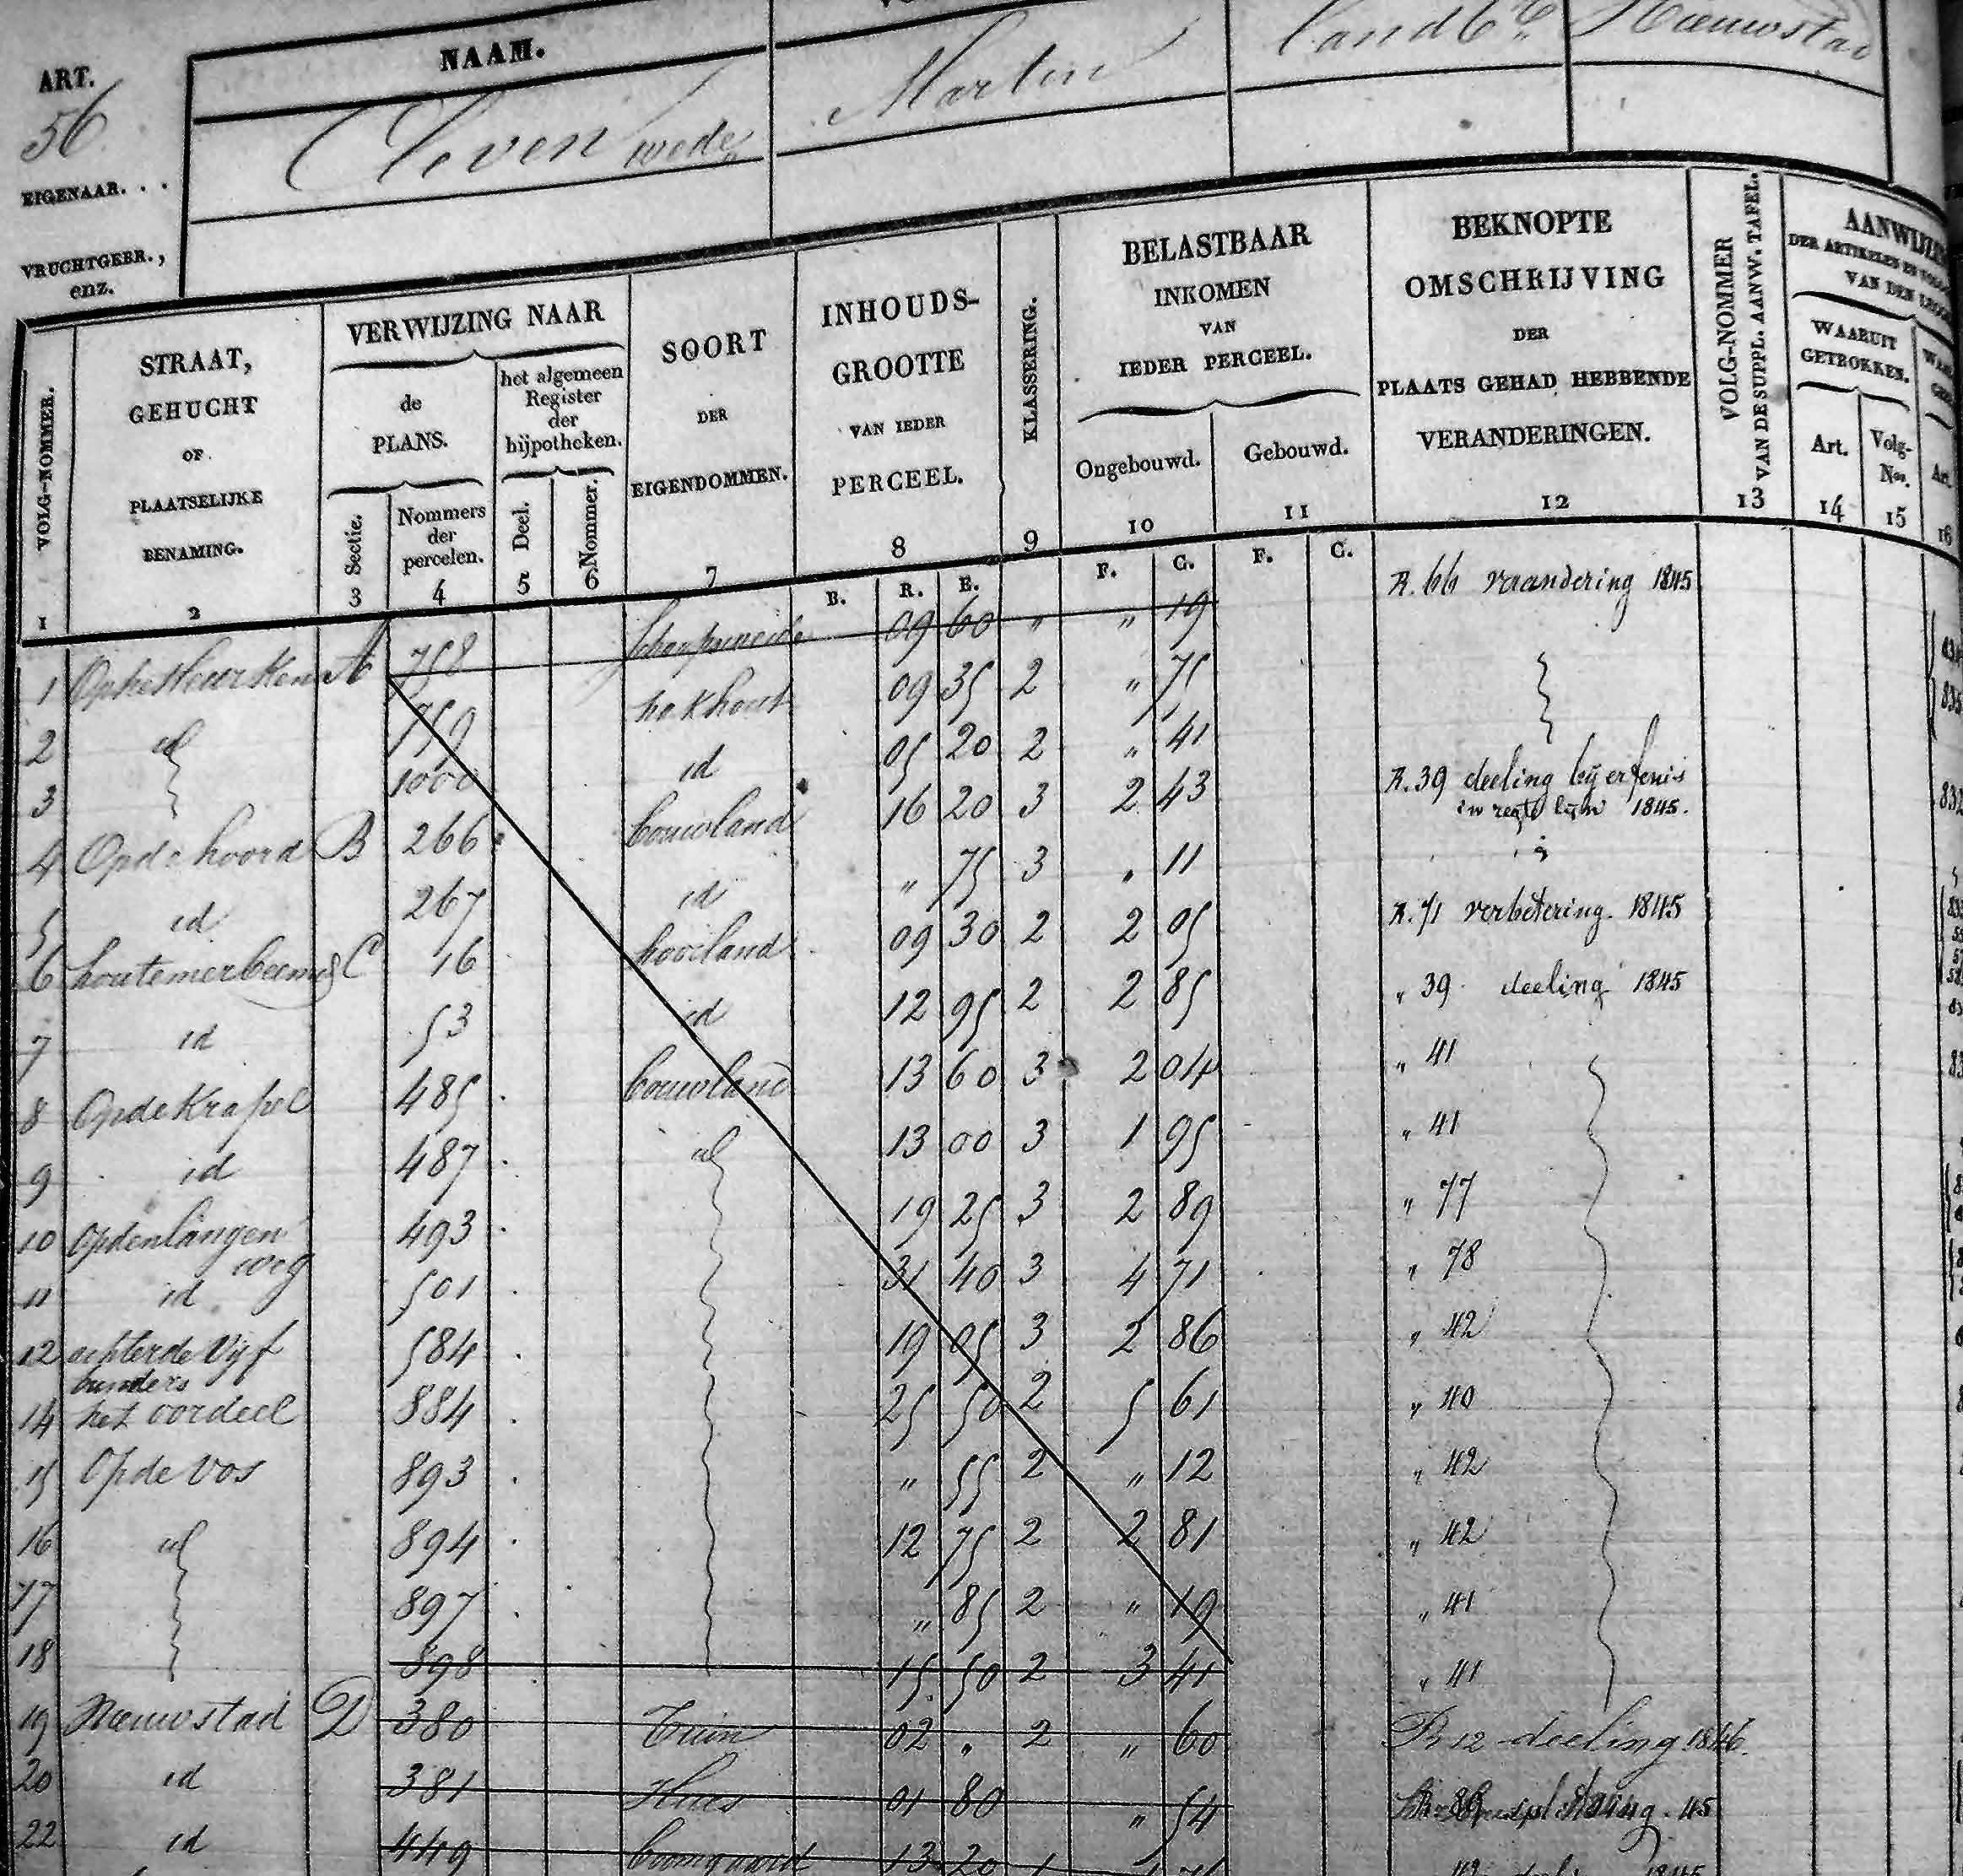 ART. NAAM.
56 Cleven wede Martin landbr Nieuwstad
EIGENAAR. . .
VRUCHTGEBR.,
enz.
VOLG-NOMMER.
1
STRAAT,
GEHUCHT
OF
PLAATSELIJKE
BENAMING.
2
VERWIJZING NAAR
de
PLANS.
Sectie.
3
Nommers
der
percelen.
4
het algemeen
Register
der
hijpotheken.
Deel.
5
Nommer.
6
SOORT
DER
EIGENDOMMEN.
7
INHOUDS-
GROOTTE
VAN IEDER
PERCEEL.
8
KLASSERING.
9
BELASTBAAR
INKOMEN
VAN
IEDER PERCEEL.
Ongebouwd.
10
Gebouwd.
11
BEKNOPTE
OMSCHRIJVING
DER
PLAATS GEHAD HEBBENDE
VERANDERINGEN.
12
VOLG-NOMMER
VAN DE SUPPL. AANW. TAFEL.
13
WAARUIT
GETROKKEN.
Art.
14
Volg-
Nos.
15
Art.
16
B. R. E. F. C. F. C.
1 A 758 schaapsweide 09 60 " " 19 R. 66 veraandering 1845
2 id 759 hakhout 09 35 2 " 75
3 1000 id 05 20 2 " 41
4 Op de hoord B 266 bouwland 16 20 3 2 43 R. 39 deeling bij erfenis
in regte lijn 1845.
5 id 267 id " 75 3 " 11
6 houtemerbeemd C 16 hooiland 09 30 2 2 05 R. 71 verbetering. 1845
7 id 53 id 12 95 2 2 85 " 39 deeling 1845
8 Op de Krapel 485 bouwland 13 60 3 2 04 " 41
9 id 487 id 13 00 3 1 95 " 41
10 Op den langen
weg 493 19 25 3 2 89 " 77
11 id 501 31 40 3 4 71 " 78
12 achter de Vijf
bunders 584 19 05 3 2 86 " 42
14 het oordeel 884 25 50 2 5 61 " 40
15 Op de Vos 893 " 55 2 " 12 " 42
16 id 894 12 75 2 2 81 " 42
17 897 " 85 2 " 19 " 41
18 898 15 50 2 3 41 " 41
19 Nieuwstad D 380 Tuin 02 " 2 " 60 R 12 deeling 1846.
20 id 381 Huis 01 80 " 54 45
22 id 449 boomgaard 13 20 1